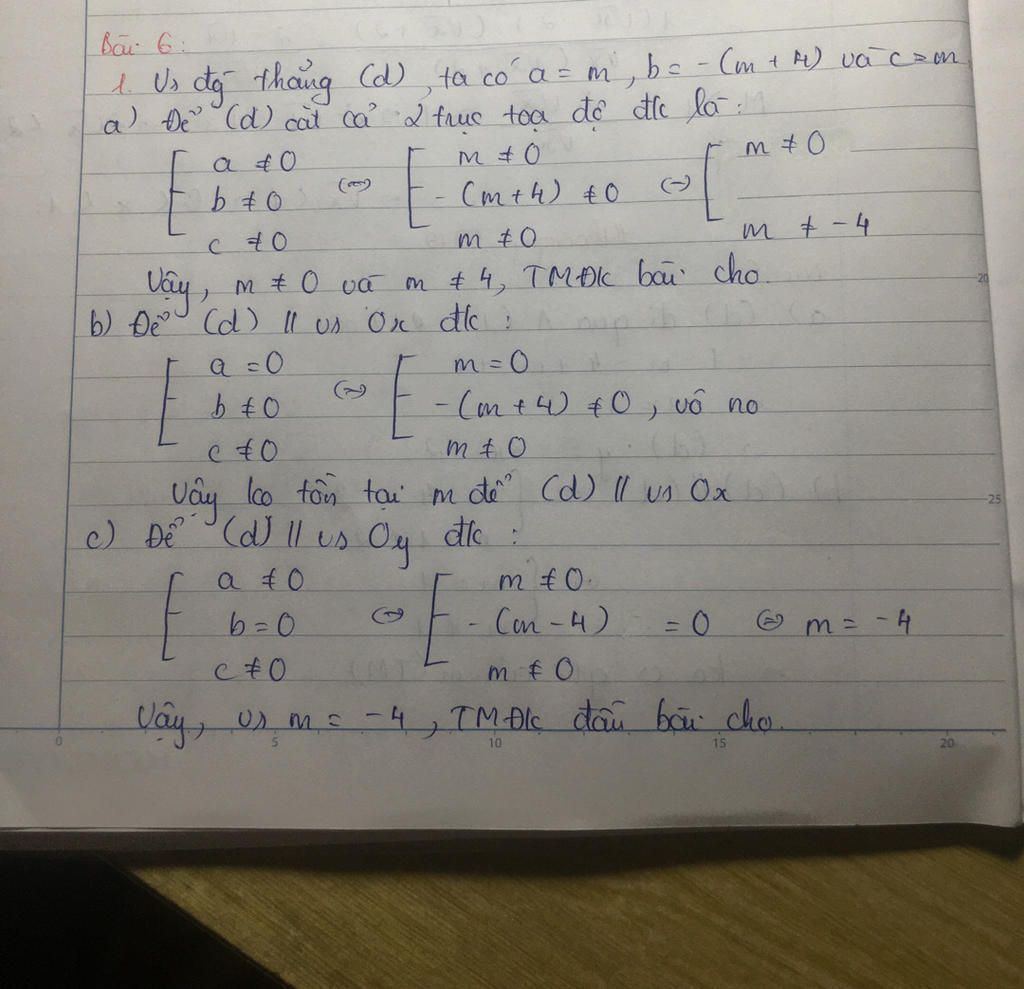 Bài 6:
1. Vs đg thẳng (d), ta có a = m, b = -(m + 4) và c = m
a) Để (d) cắt cả 2 trục toạ độ đk là:
[ a ≠ 0 (=) [ m ≠ 0 (=) [ m ≠ 0
b ≠ 0 -(m+4) ≠ 0
c ≠ 0 m ≠ 0 m ≠ -4
Vậy, m ≠ 0 và m ≠ 4, TMĐK bài cho.
b) Để (d) // vs Ox đk:
[ a = 0 (=) [ m = 0
b ≠ 0 -(m + 4) ≠ 0, vô no
c ≠ 0 m ≠ 0
Vậy ko tồn tại m để (d) // vs Ox
c) Để (d) // vs Oy đk:
[ a ≠ 0 (=) [ m ≠ 0.
b = 0 -(m - 4) = 0 (=) m = -4
c ≠ 0 m ≠ 0
Vậy, vs m = -4, TMĐK đầu bài cho.
0 5 10 15 20
20
25